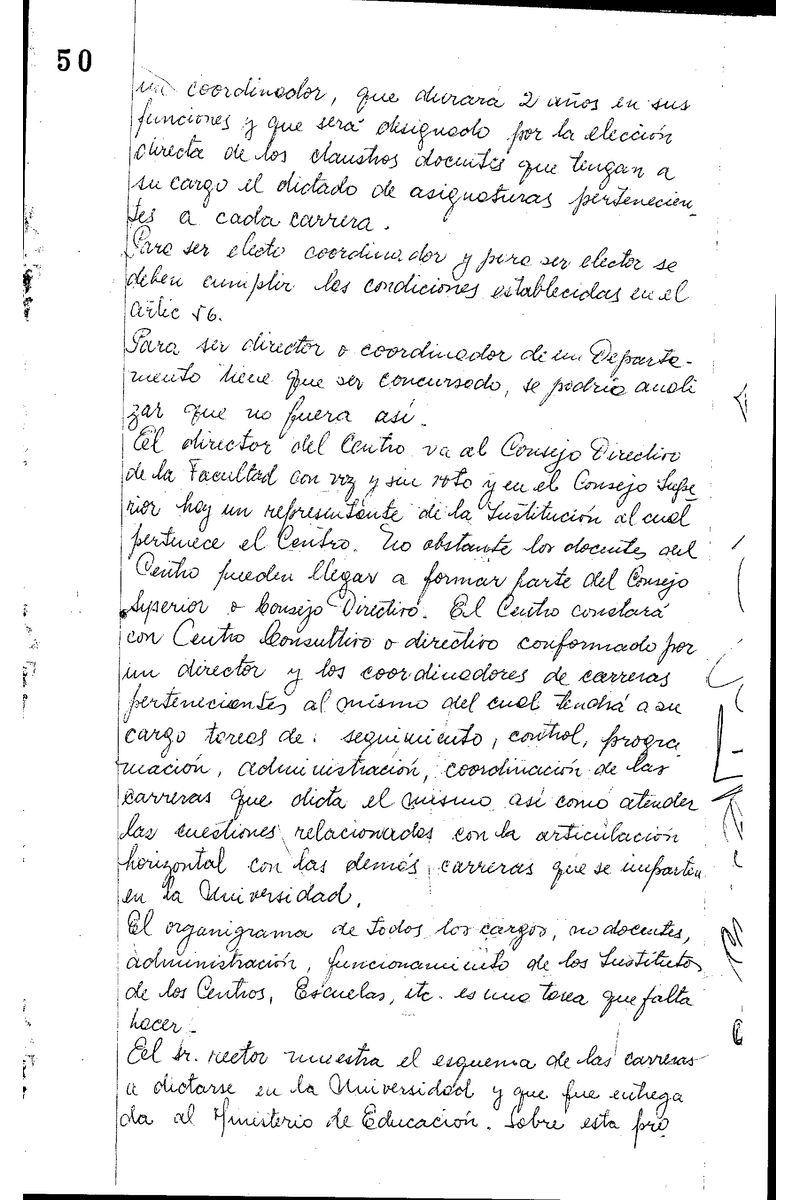 50
un coordinador, que durará 2 años en sus
funciones y que será designado por la elección
directa de los claustros docentes que tengan a
su cargo el dictado de asignaturas pertenecien-
tes a cada carrera.
Para ser electo coordinador y para ser elector se
deben cumplir las condiciones establecidas en el
artic 56.
Para ser director o coordinador de un Departa-
mento tiene que ser concursado, se podría anali
zar que no fuera así.
El director del Centro va al Consejo Directivo
de la Facultad con voz y sin voto y en el Consejo Supe-
rior hay un representante de la Institución al cual
pertenece el Centro. No obstante los docentes del
Centro pueden llegar a formar parte del Consejo
Superior o Consejo Directivo. El Centro constará
con Centro Consultivo o directivo conformado por
un director y los coordinadores de carreras
pertenecientes al mismo del cual tendrá a su
cargo tareas de: seguimiento, control, progra
mación, administración, coordinación de las
carreras que dicta el mismo así como atender
las cuestiones relacionadas con la articulación
horizontal con las demás carreras que se imparten
en la Universidad.
El organigrama de todos los cargos, no docentes,
administración, funcionamiento de los Institutos,
de los Centros, Escuelas, etc. es una tarea que falta
hacer.
El Sr. rector muestra el esquema de las carreras
a dictarse en la Universidad y que fue entrega
da al Ministerio de Educación. Sobre esta pro